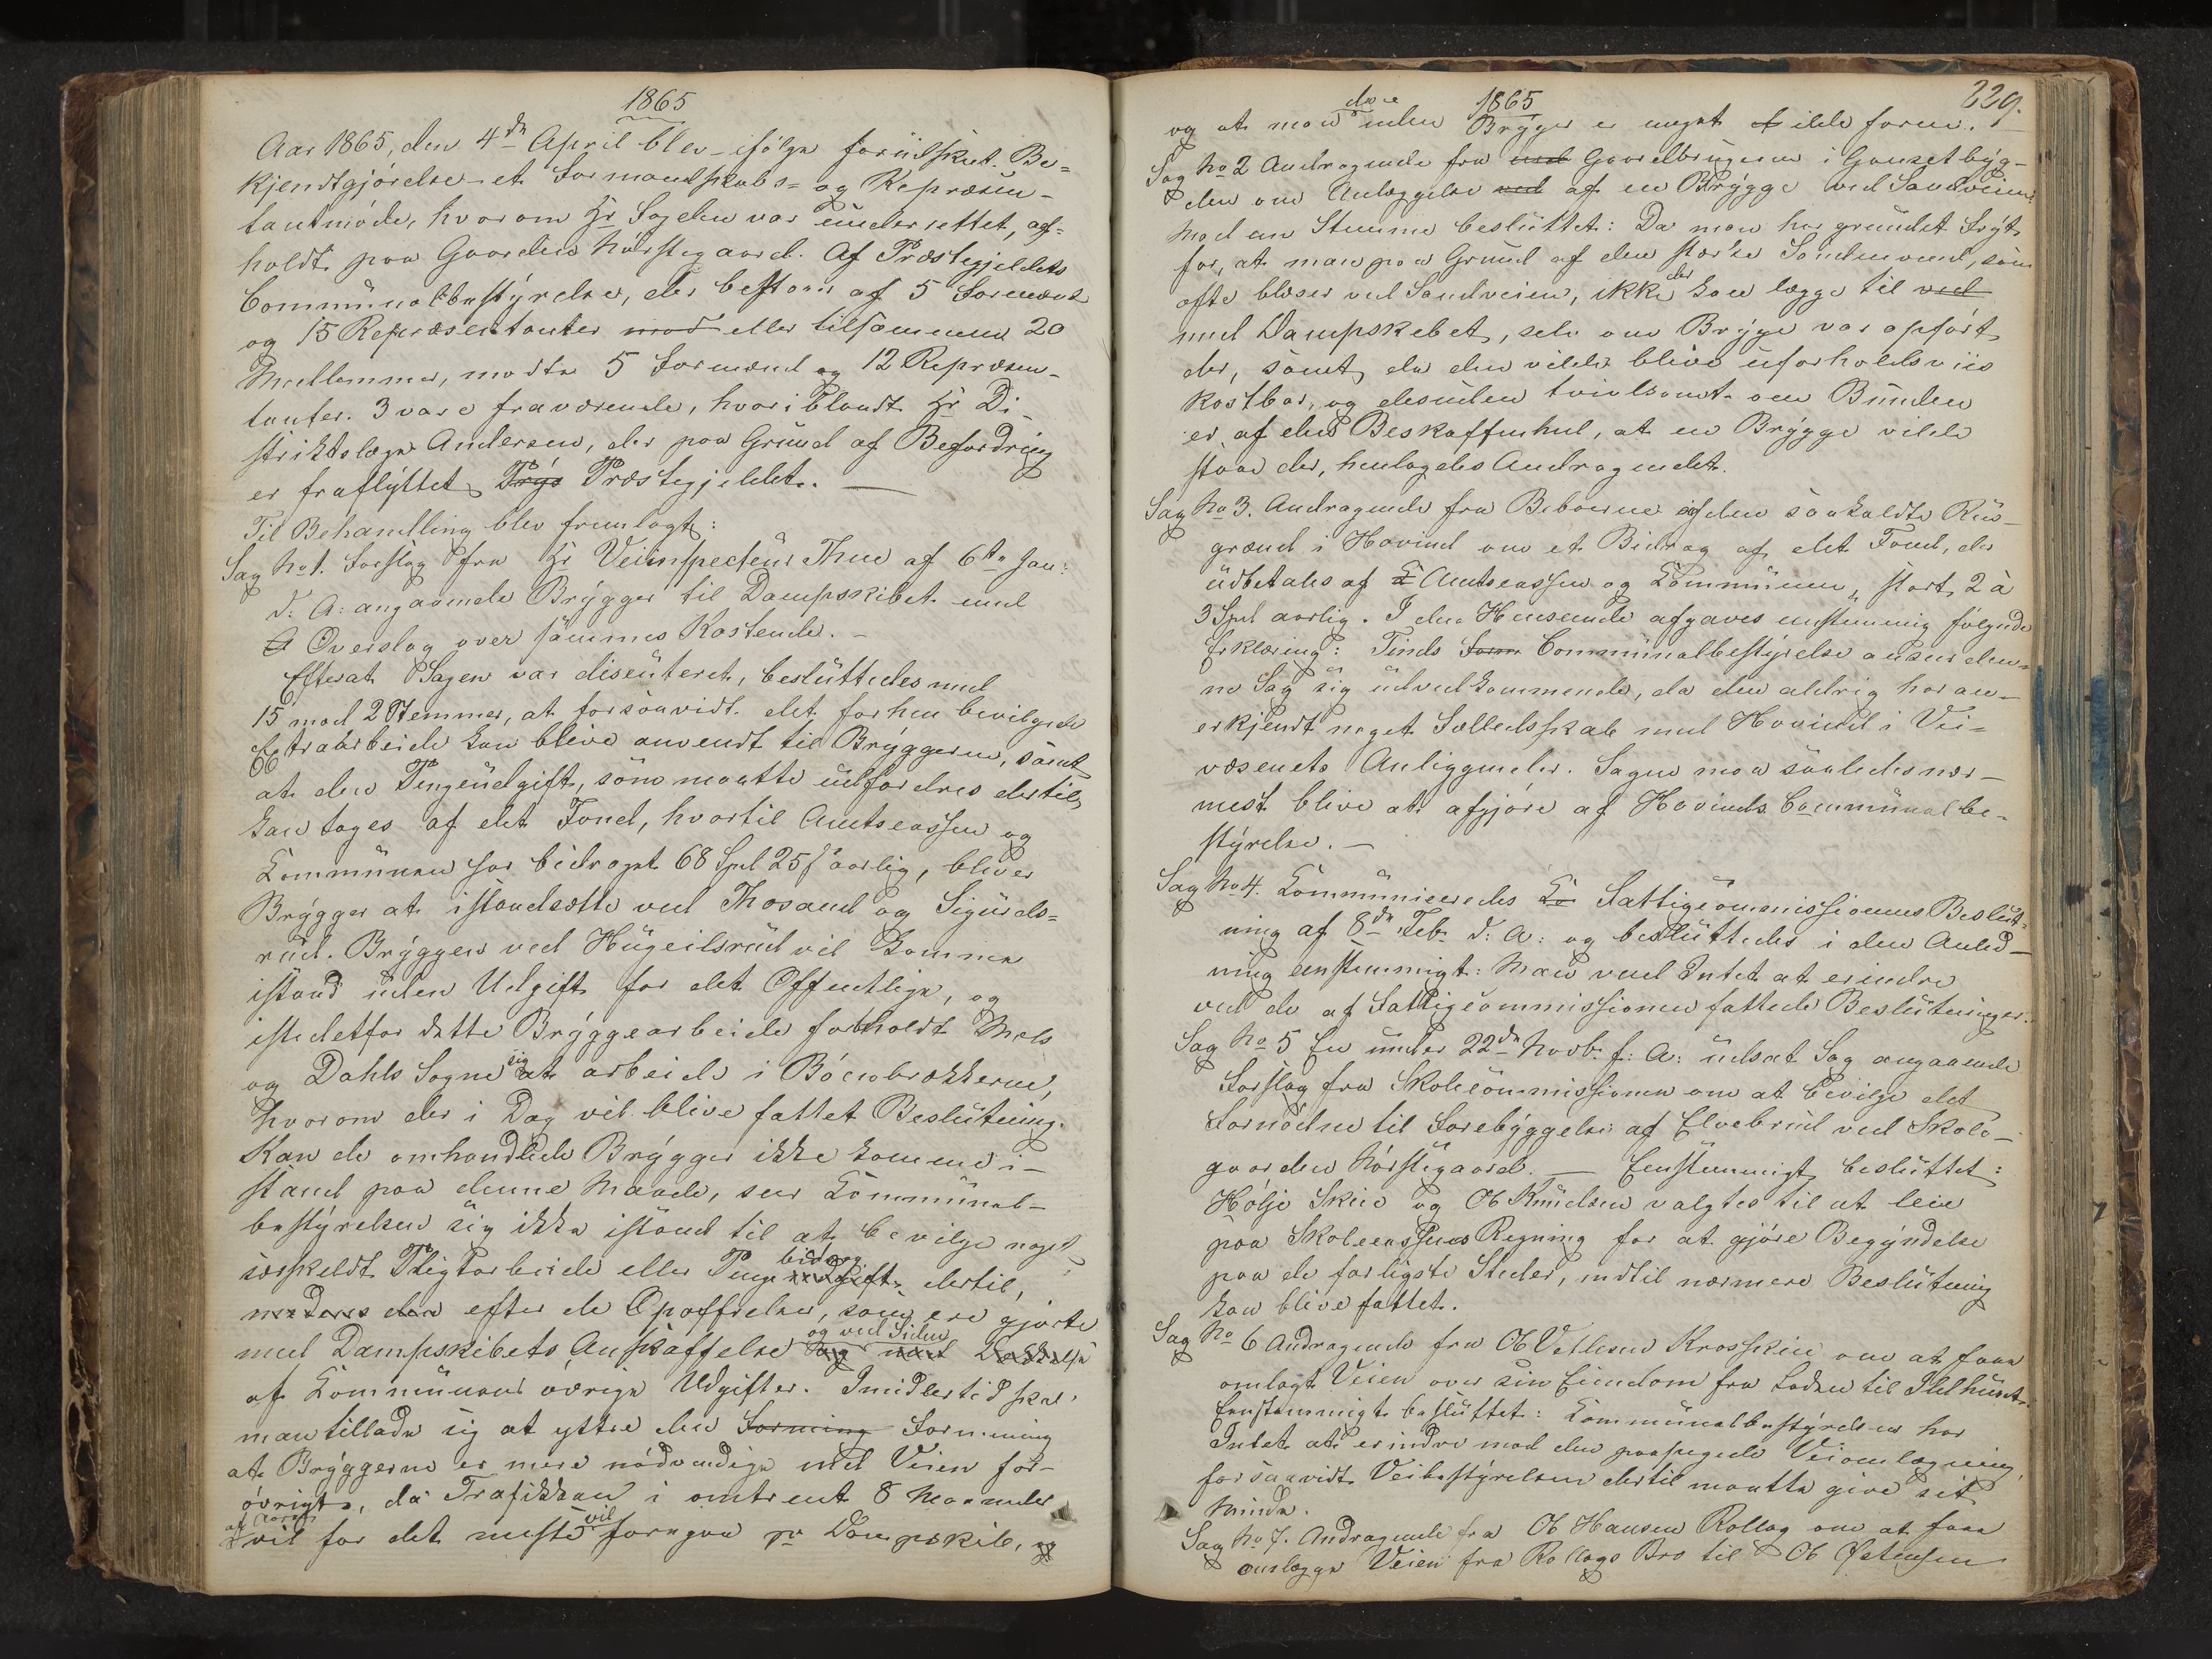 1865
Aar 1865, den 4de April blev ifølge foriilsket Be=
kjendtgjørelse et Formandskabs= og Repræsen-
tantmøde, hvorom Hr Fogden var underrettet, af=
holdt paa Gaarden Hørstegaard. Af Præstegjeldets
Communalbestyrelse, der bestaar af 5 Formænd
og 15 Repræsentanter mod eller tilsammen 20
Medlemmer, mødte 5 Formænd og 12 Repræsen-
tanter. 3 vare fraværende, hvoriblandt Hr Di-
striktslæge Andersen, der paa Grund af Befordring
er fraflyttet Præstegjeldet. —
Til Behandling blev fremlagt:
Sag No 1. Forslag fra Hr Veiinspecteur Thue af 6te Jan:
d: A: angaaende Brygger til Dampskibet med
Overslag over sammes Kostende. –
Efterat Sagen var discuteret, besluttedes med
15 mod 2 Stemmer, at forsaavidt det forhen bevilgede
Extraarbeide kan blive anvendt til Bryggerne, samt
at den Pengeudgift, som maatte udfordres dertil,
kan tages af det Fond, hvortil Amtscassen og
Kommunen har bidraget 68 Spd 25 s aarlig, bliver
Brygger at istandsætte ved Thosand og Sigurds=
rud. Bryggen ved Hugeilsrud vil komme
istand uden Udgift for det Offentlige, og
istedetfor dette Bryggearbeide forholdt Mæls
og Dahls Sogne sig at arbeide i Bøenbrækkerne,
hvorom der i Dag vil blive fattet Beslutning.
Kan de omhandlede Brygger ikke komme i-
stand paa denne Maade, seer Kommunal-
bestyrelsen sig ikke istand til at bevilge noget
særskeldt Pligtarbeide eller Pengebidrag dertil,
efter de Opoffrelser, som ere gjorte
med Dampskibets Anskaffelse og ved Siden
af Kommunens øvrige Udgifter. Imidlertid skal
man tillade sig at yttre den Formning Formening
at Bryggerne er mere nødvendige end Veien for-
øvrigt, da Trafikken i omtrent 8 Maaneder
af Aaret vil for det meste foregaa pr Dampskib, og
1865 229.
og at man uden Brygger er meget ilde faren.
Sag No 2 Andragende fra Gaardbrugerne i Gauset byg-
den om Anlæggelse ved af en Brygge ved Sandveien.
Mod en Stemme besluttet: Da man har grundet Frygt
for, at man paa Grund af den stærke Søndenvind, som
ofte blæser ved Sandveien, ikke der kan lægge til ved
med Dampskibet, selv om Brygge var opført
der, samt da den vilde blive uforholdsviis
kostbar, og desuden tvivlsomt om Bunden
er af den Beskaffenhed, at en Brygge vilde
staa der, henlagdes Andragendet.
Sag No 3. Andragende fra Beboerne af den saakaldte Rus-
grænd i Hovind om et Bidrag af det Fond, der
udbetales af Amtscassen og Kommunen, stort 2 à
3 Spd aarlig. I den Henseende afgaves enstemmig følgende
Erklæring: Tinds Form Communalbestyrelse anseer den-
ne Sag sig uvedkommende, da den aldrig har an-
erkjendt noget Fælledsskab med Hovind i Vei-
væsenets Anliggender. Sagen maa saaledes nær-
mest blive at afgjøre af Hovinds Communalbe-
styrelse. –
Sag No 4. Kommuniceredes Fattigcommissionens Beslut-
ning af 8de Feb. d: A: og besluttedes i den Anled-
ning eenstemmigt: Man ved Intet at erindre
ved de af Fattigcommissionen fattede Beslutninger.
Sag No 5 En under 22de Novb. f: A: udsat Sag angaaende
Forslag fra Skolecommissionen om at bevilge det
Fornødne til Forebyggelse af Elvebrud ved Skole-
gaarden Hørstegaard. — Eenstemmigt besluttet:
Hølje Skeie og Ob Knudsen valgtes til at leie
paa Skolecassens Regning for at gjøre Begyndelse
paa de farligste Steder, indtil nærmere Beslutning
kan blive fattet.
Sag No 6 Andragende fra Ob Vetlesen Krosskeie om at faa
omlagt Veien over sin Eiendom fra Laden til Ildhuset.
Eenstemmigt besluttet: Kommunalbestyrelsen har
Intet at erindre mod den paapegede Veiomlægning,
forsaavidt Veibestyrelsen dertil maatte give sit
Minde.
Sag No 7. Andragende fra Ob Hansen Rollag om at faa
omlægge Veien fra Rollags Bro til Ob Østensen